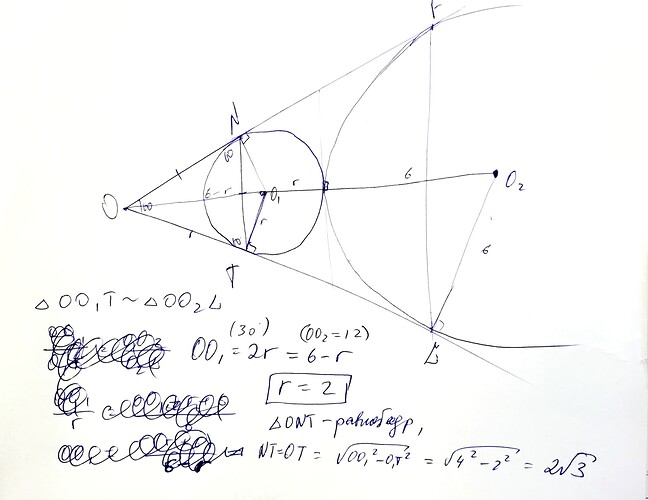 F
N
60
O
60
6-r
r
O₁
r
6
O₂
r
6
60
T
L
△OO₁T ~ △OO₂L
(30°) (OO₂=12)
OO₁ = 2r = 6-r
r = 2
r
△ONT - равнобедр,
NT=OT = √OO₁²-O₁T² = √4²-2² = 2√3